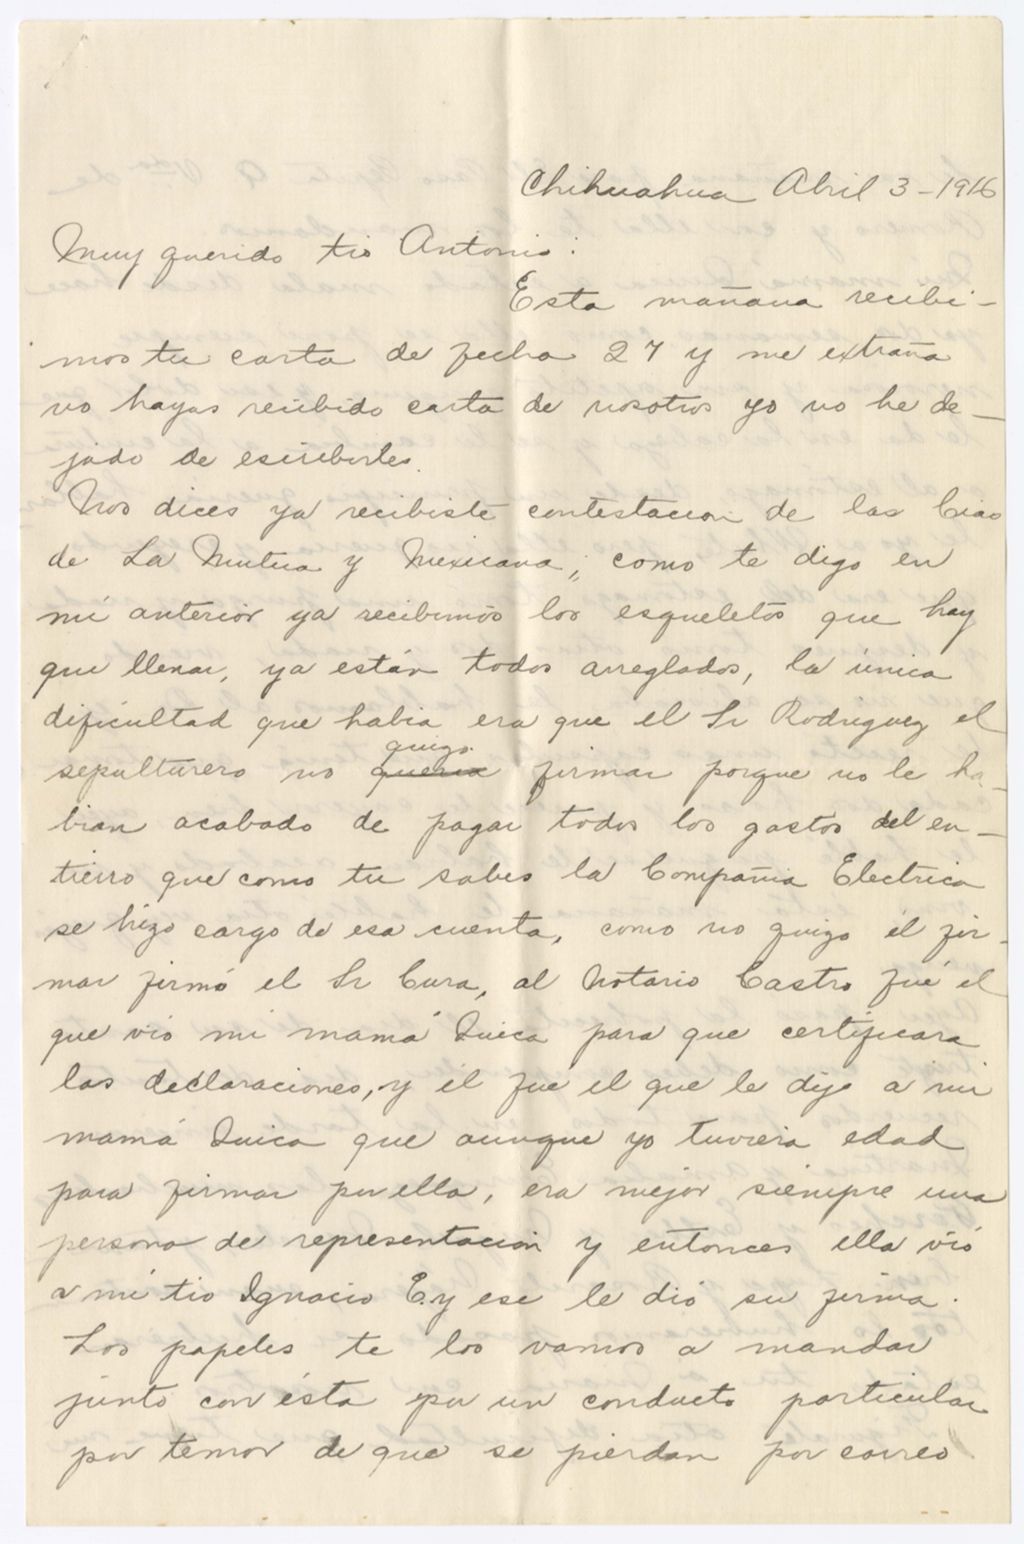 Chihuahua Abril 3-1916
Muy querido tio Antonio:
Esta mañana recibi-
mos tu carta de fecha 27 y me extraña
no hayas recibido carta de nosotros yo no he de-
jado de escribirles.
Nos dices ya recibiste contestacion de las Cias
de La Mutua y Mexicana, como te digo en
mi anterior ya recibimos los esqueletos que hay
que llenar, ya están todos arreglados, la única
dificultad que habia era que el Sr Rodriguez el
sepulturero no queria quizo firmar porque no le ha-
bian acabado de pagar todos los gastos del en-
tierro que como tu sabes la Compañia Electrica
se hizo cargo de esa cuenta, como no quizo él fir-
mar firmó el Sr Cura, al Notario Castro fué el
que vio mi mamá Quica para que certificara
las declaraciones, y él fue el que le dijo a mi
mamá Quica que aunque yo tuviera edad
para firmar por ella, era mejor siempre una
persona de representación y entonces ella vió
a mi tio Ignacio E. y ese le dió su firma.
Los papeles te los vamos a mandar
junto con ésta por un conducto particular
por temor de que se pierdan por correo